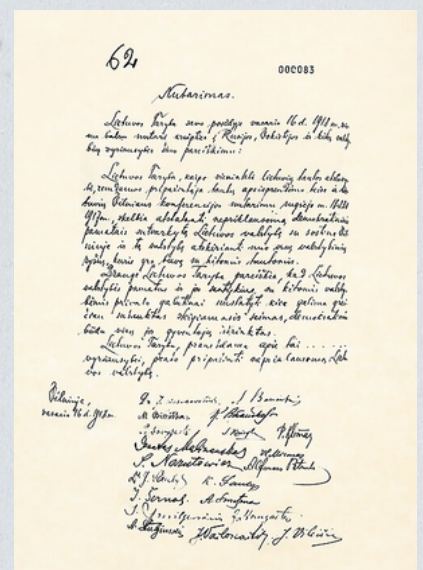 62
000083
Nutarimas.
Lietuvos Taryba savo posėdyje vasario 16 d. 1918 m. vie
nu balsu nutarė kreiptis į Rusijos, Vokietijos ir kitų valsty
bių vyriausybes šiuo pareiškimu:
Lietuvos Taryba, kaipo vienintelė lietuvių tautos atstovy
bė, remdamos pripažintąja tautų apsisprendimo teise ir lie
tuvių Vilniaus konferencijos nutarimu rugsėjo m. 18-23 d.
1917 m., skelbia atstatanti nepriklausomą demokratiniais
pamatais sutvarkytą Lietuvos valstybę su sostine Vil
niuje ir tą valstybę atskirianti nuo visų valstybinių
ryšių, kurie yra buvę su kitomis tautomis.
Drauge Lietuvos Taryba pareiškia, kad Lietuvos
valstybės pamatus ir jos santykius su kitomis valsty
bėmis privalo galutinai nustatyti kiek galima grei
čiau sušauktas steigiamasis seimas, demokratiniu
būdu visų jo gyventojų išrinktas.
Lietuvos Taryba, pranešdama apie tai . . . . . .
vyriausybei, prašo pripažinti nepriklausomą Lietu
vos valstybę.
Vilniuje,
vasario 16 d. 1918 m.
Donatas Malinauskas
S. Narutowicz
J. Vailokaitis J. Vileišis